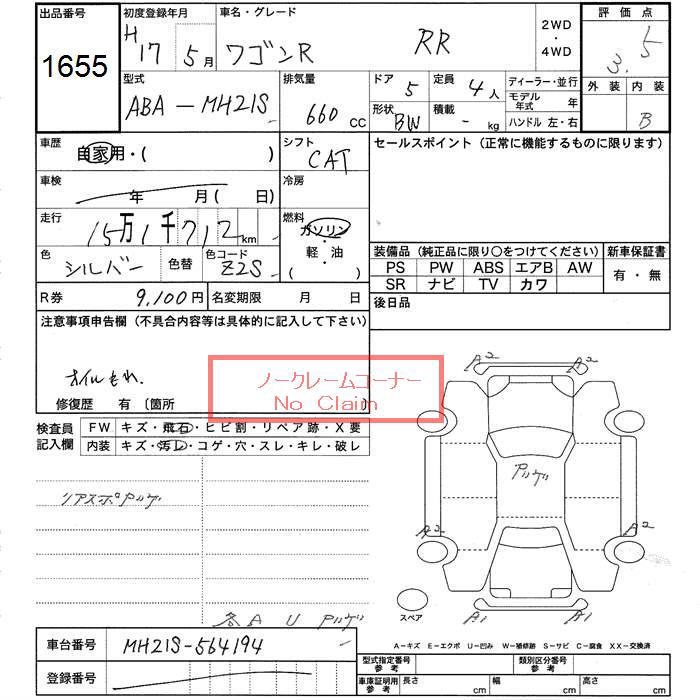 出品番号
1655
初度登録年月
H 17 5月
車名・グレード
ワゴンR RR
2WD・4WD
評価点
3.5
外装 内装
B
型式
ABA-MH21S
排気量
660 CC
ドア 5
定員 4人
形状 BW
積載 - kg
ディーラー・並行
モデル年式 年
ハンドル 左・右
車歴
自家用・( )
シフト
CAT
セールスポイント (正常に機能するものに限ります)
車検
年 月( 日)
冷房
走行
15万1千712km
燃料
ガソリン・軽・油
( )
色
シルバー
色替
色コード
Z2S
装備品 (純正品に限り○をつけてください)
新車保証書
PS PW ABS エアB AW
SR ナビ TV カワ
有・無
R券 9,100円
名変期限 月 日
後日品
注意事項申告欄 (不具合内容等は具体的に記入して下さい)
オイルもれ.
ノークレームコーナー
No Claim
修復歴 有 〔箇所
検査員記入欄
FW キズ・飛石・ヒビ割・リペア跡・X要
内装 キズ・汚レ・コゲ・穴・スレ・キレ・破レ
リアスポ Pハゲ
各A U Pハゲ
A2 A2
Pハゲ
A2 A2
B1 B1
スペア
A-キズ E-エクボ U-凹み W-補修跡 S-サビ C-腐食 XX-交換済
車台番号
MH21S-564194
登録番号
型式指定番号 参考
類別区分番号 参考
車庫証明用 参考
長さ cm 幅 cm 高さ cm